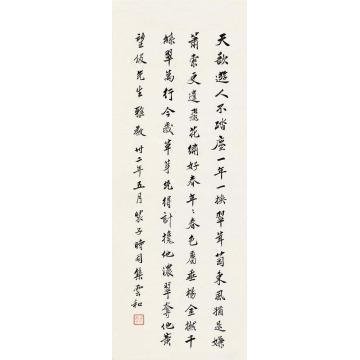 天欲遊人不踏塵一年一換翠茸茵東風猶是嫌
蕭索更遣飛花繡好春年々春色屬垂楊金撚千
絲翠萬行今歲草芽先得計攙他濃翠奪他黃
望伋先生雅教 卅二年五月裴子時同集雲和